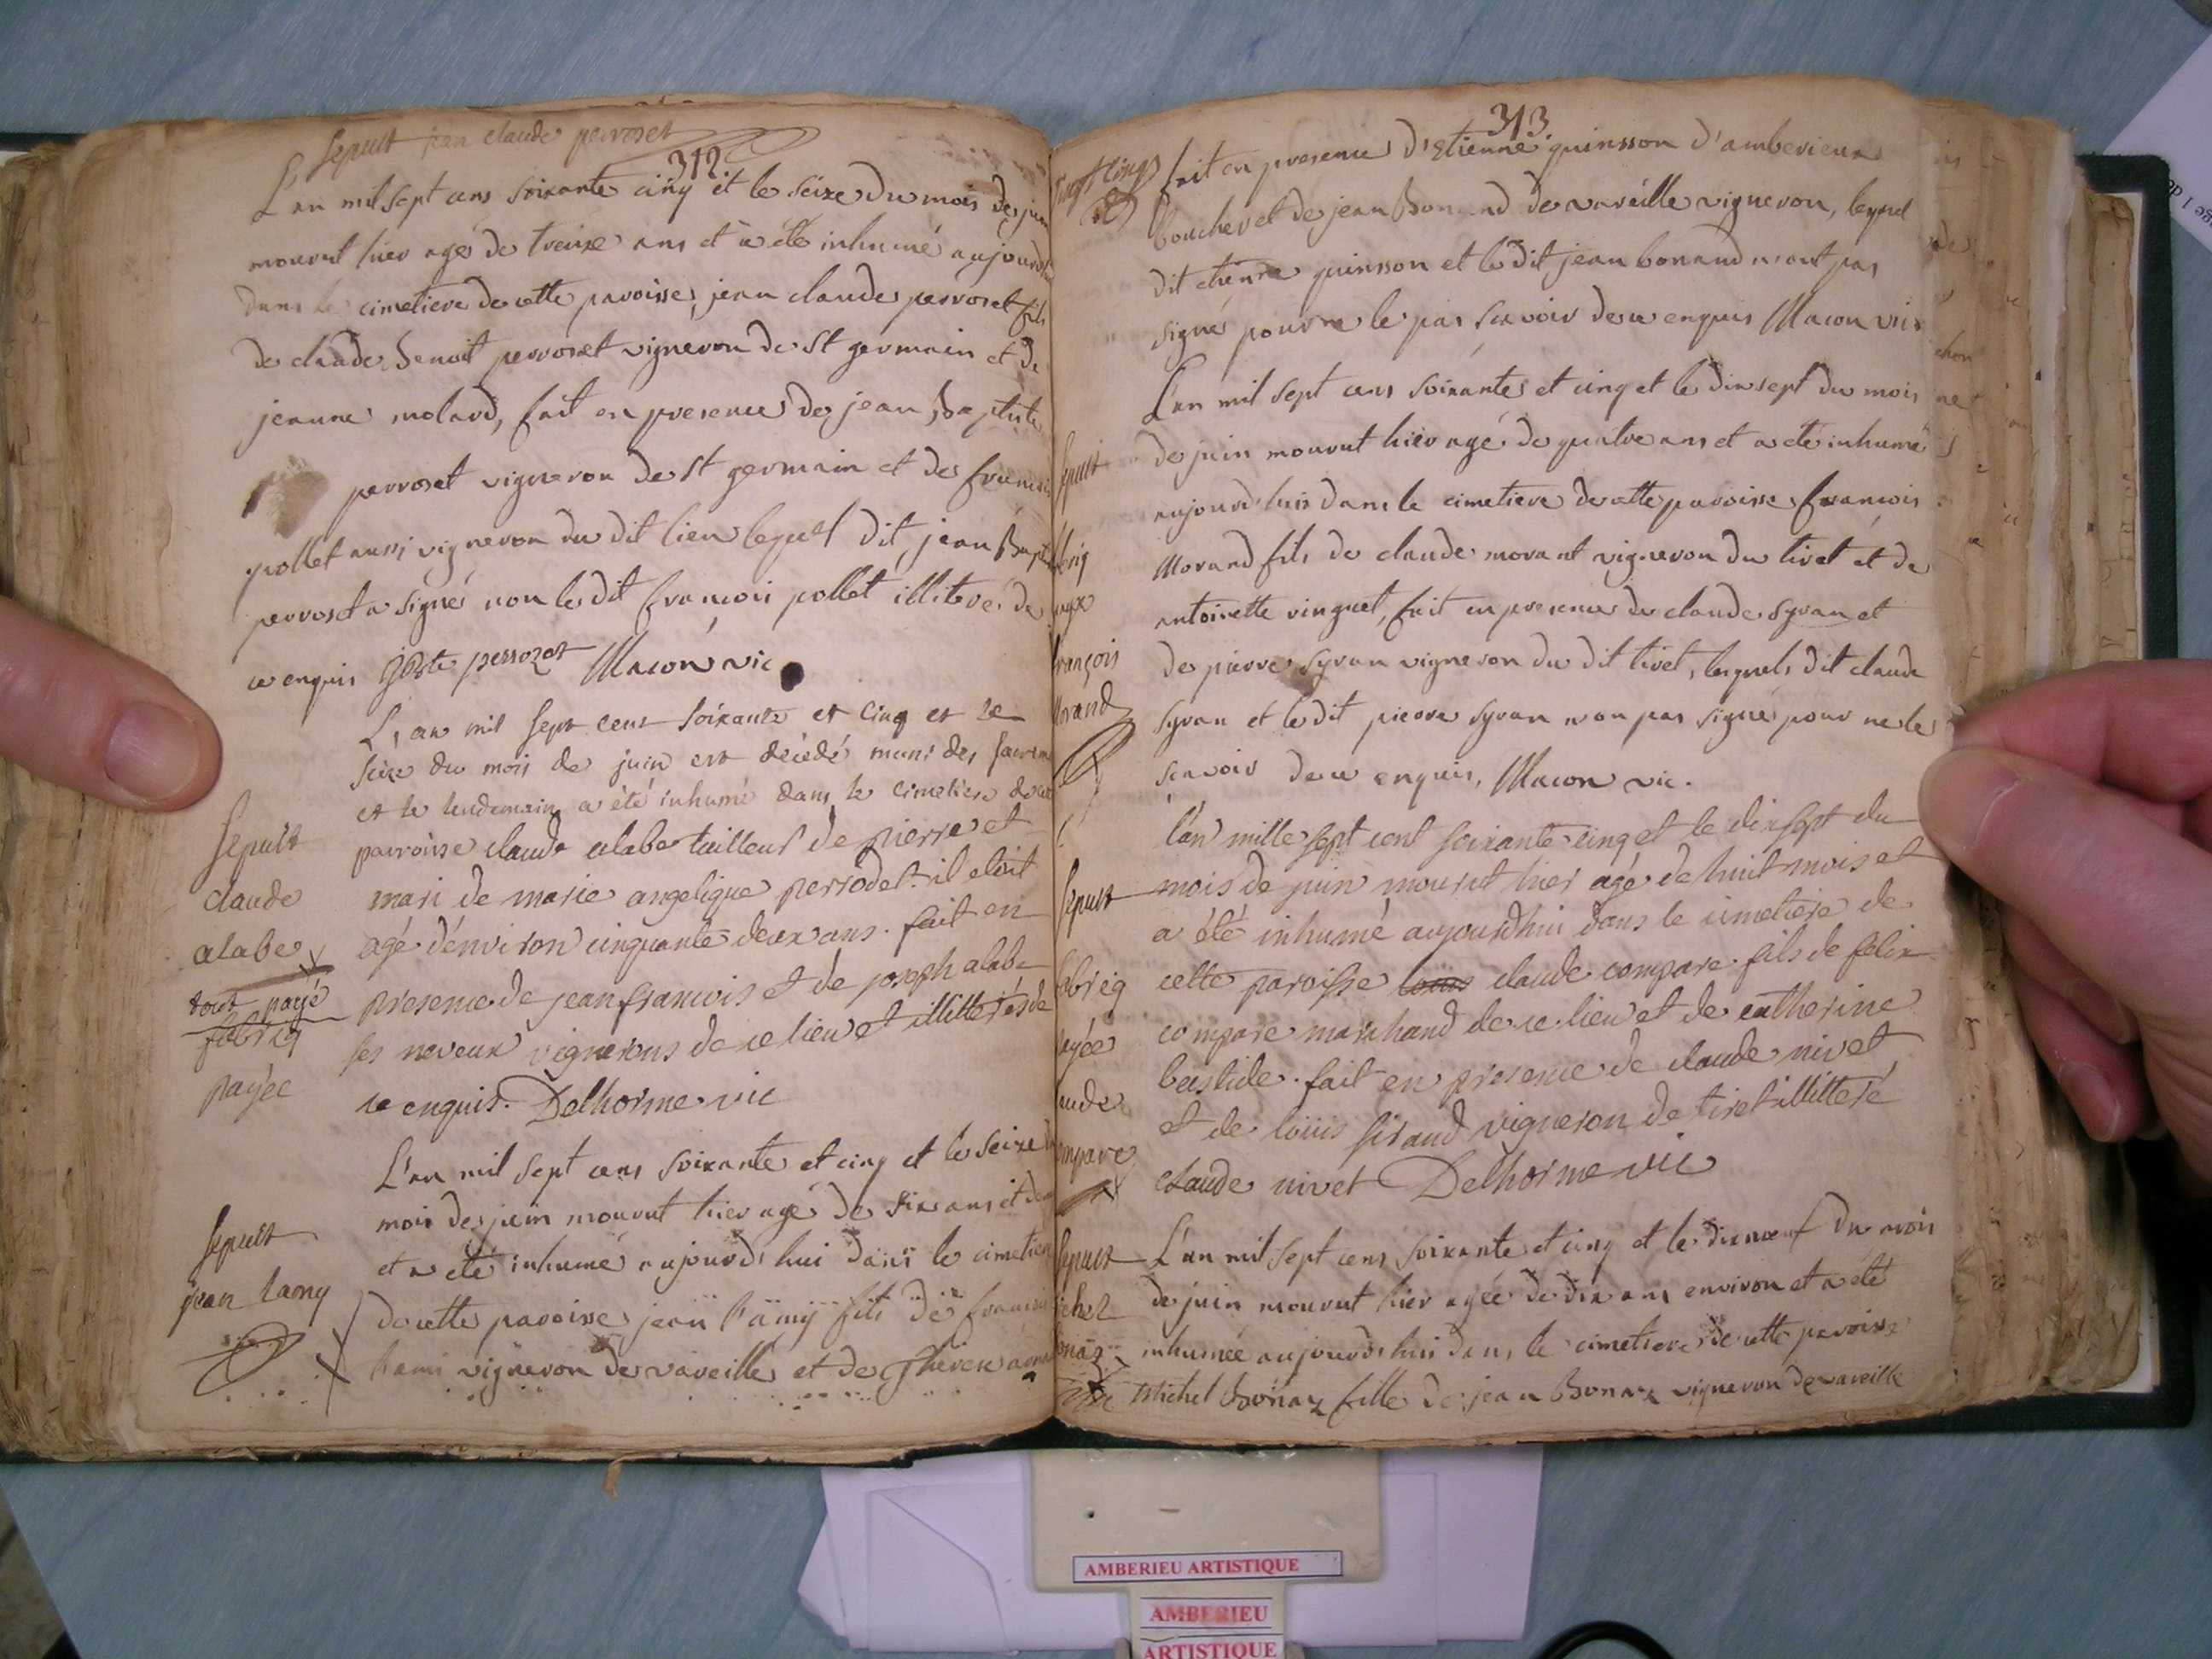 Sepult jean claude perroset
312
L'an mil sept cens soixante cinq et le seize du mois de juin
mourut hier agé de treize ans et a été inhumé aujourd
dans le cimetiere de cette paroisse jean claude perroset fils
de claude benoit perroset vigneron de St germain et de
jeanne molard, fait en presence de jean Baptiste
perroset vigneron de St germain et de francois
pollet aussi vigneron du dit lieu lequel dit jean Bapt
perroset a signé non le dit francois pollet illiteré de
ce enquis JBte perrozet Macon vic
L'an mil sept cent soixante et cinq et le
seize du mois de juin est décédé muni des sacrem
et le lendemain a été inhumé dans le cimetiere de cet
parroisse claude alabe tailleur de pierre et
mari de marie angelique perrodet. il etoit
agé d'environ cinquante deux ans. fait en
presence de jean francois et de joseph alabe
ses neveux vignerons de ce lieu et illitterés de
ce enquis. Delhorme vic
Sepult
claude
alabe
tout payé
fabriq
payée
L'an mil sept cens soixante et cinq et le seize du
mois de juin mourut hier agé de six ans et dem
et a été inhumé aujourd'hui dans le cimetier
de cette paroisse jean lamy fils de francois
lami vigneron de vareille et de Therese
Sepult
jean lamy
313
fait en presence d'Etienne quinsson d'amberieux
boucher et de jean Bonand de vareille vigneron, lequel
dit etienne quinsson et le dit jean bonand n'ont pas
signé pour ne le pas scavoir de ce enquis Macon vic
L'an mil sept cens soixante et cinq et le dix sept du mois
de juin mourut hier agé de quatre ans et a eté inhumé
aujourd'hui dans le cimetiere de cette paroisse francois
Morand fils de claude morant vigneron du tiret et de
antoinette vinguet, fait en presence de claude syran et
de pierre syran vigneron du dit tiret, lesquels dit claude
syran et le dit pierre syran n'on pas signé pour ne le
scavoir de ce enquis, Macon vic.
Sepult
fabriq
françois
Morand
l'an mille sept cent soixante cinq et le dix sept du
mois de juin mourut hier agé de huit mois et
a été inhumé aujourdhui dans le cimetiere de
cette paroisse louis claude compare fils de felix
compare marchand de ce lieu et de catherine
bastide. fait en presence de claude nivet
et de louis sirand vigneron de tiret illitteré
claude nivet Delhorme vic
Sepult
fabriq
payée
claude
compare
L'an mil sept cens soixante et cinq et le dix neuf du mois
de juin mourut hier agée de dix ans environ et a été
inhumée aujourd'hui dans le cimetiere de cette paroisse
Michel Bonaz fille de jean Bonaz vigneron de vareille
Sepult
michel
bonaz
AMBERIEU ARTISTIQUE
AMBERIEU
ARTISTIQUE